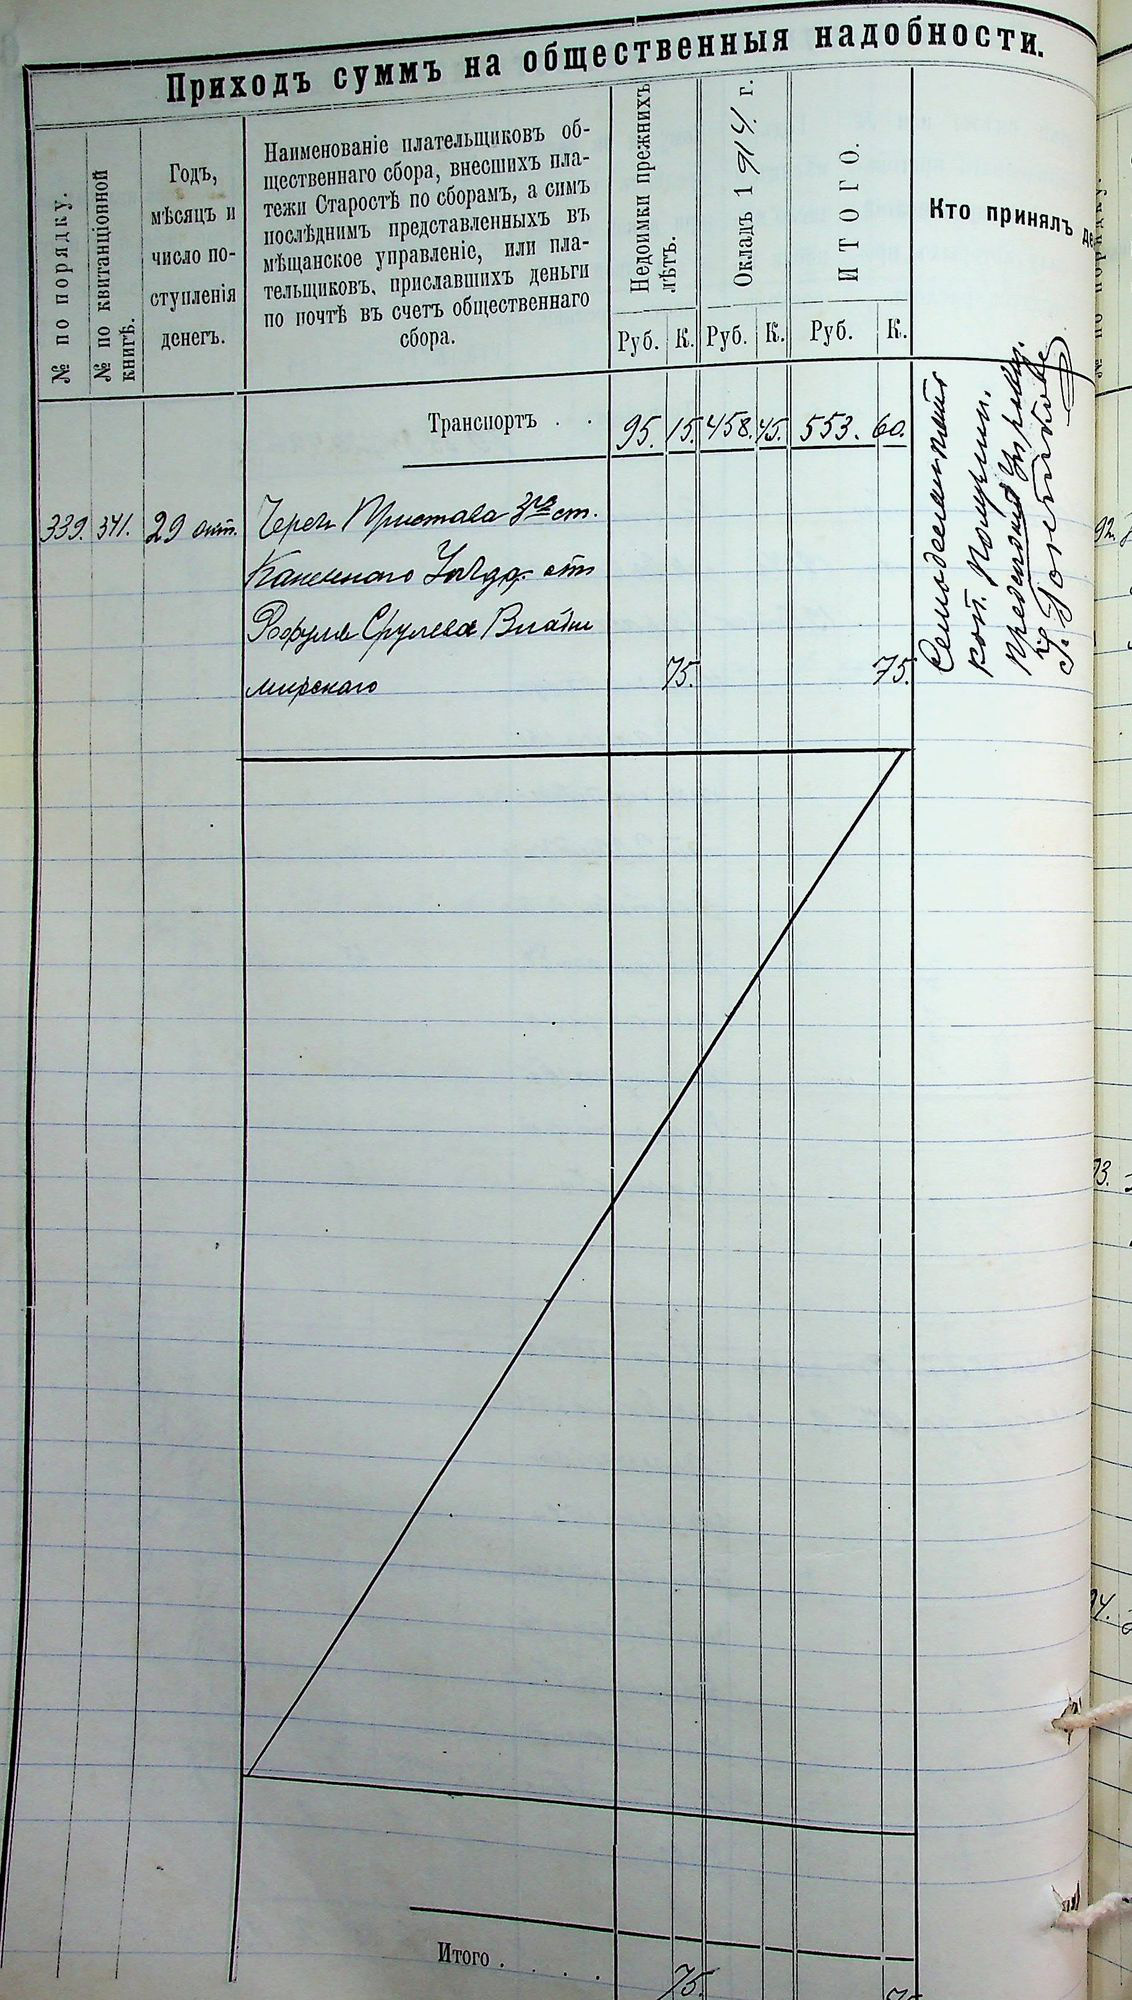 Приходъ суммъ на общественныя надобности.
№ по порядку.
№ по квитанціонной
книгѣ.
Годъ,
мѣсяцъ и
число по-
ступленія
денегъ.
Наименованіе плательщиковъ об-
щественнаго сбора, внесшихъ пла-
тежи Старостѣ по сборамъ, а симъ
послѣднимъ представленныхъ въ
мѣщанское управленіе, или пла-
тельщиковъ, приславшихъ деньги
по почтѣ въ счетъ общественнаго
сбора.
Недоимки прежнихъ
лѣтъ.
Окладъ 1914 г.
ИТОГО.
Руб. К. Руб. К. Руб. К.
Кто принялъ де
Транспортъ . . 95. 15. 458. 45. 553. 60.
339. 341. 29 окт. Черезъ Пристава 3го ст.
Каневскаго Уѣзда отъ
Срулева Влади
мирскаго 75. 75.
Семьдесятъ пять
коп. Получилъ.
Итого . . . . 75. 75
№ по порядку.
92.
93.
94.